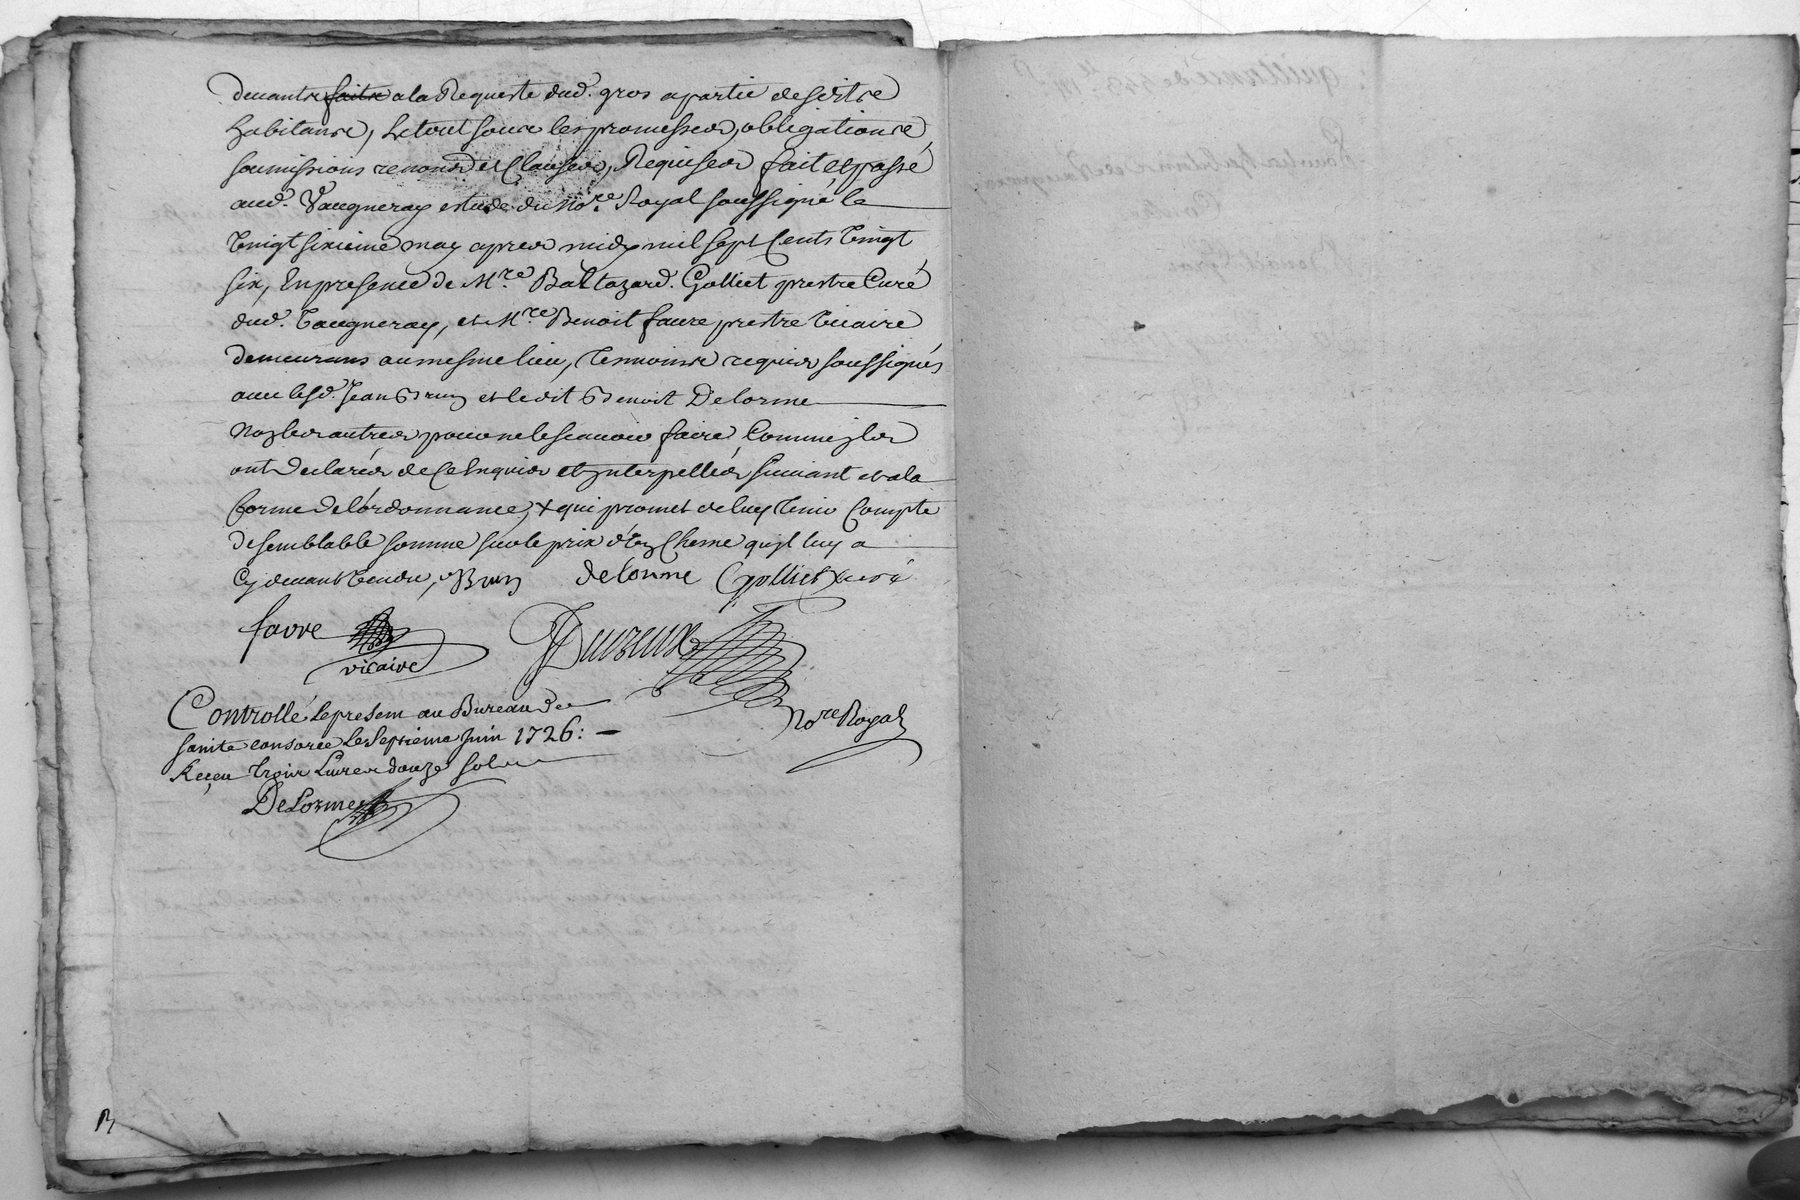 devants faits a la Requeste dud. gros a partie desdits
habitans, Le tout sous les promesses, obligations,
soumissions renons et Clauses, Requises fait et passé
aud. Vaugneray estude du No.re Royal soussigné le
Vingt sixieme may apres midy mil sept Cents Vingt
six, En presence de M.re Baltazard. Golliet prestre Curé
dud. Vaugneray, et M.re Benoit faure prestre Vicaire
demeurans au mesme lieu, Tesmoins requis soussignés
avec lesd. Jean Brun et ledit Benoit Delorme
Non les autres pour ne le scavoir faire Comme ils
ont declarés de ce Enquis et Interpellés suivant et a la
forme de l'ordonnance, + qui promet de luy Tenir Compte
de semblable somme sur le prix d'un Chesne qu'il luy a
Cy devant Vendu, Brun delorme Golliet curé
favre
vicaire
Dureux
No.re Royal
Controllé le present au Bureau de
sainte consorce Le septieme Juin 1726: –
Receu Trois Livres douze sols
DeLorme